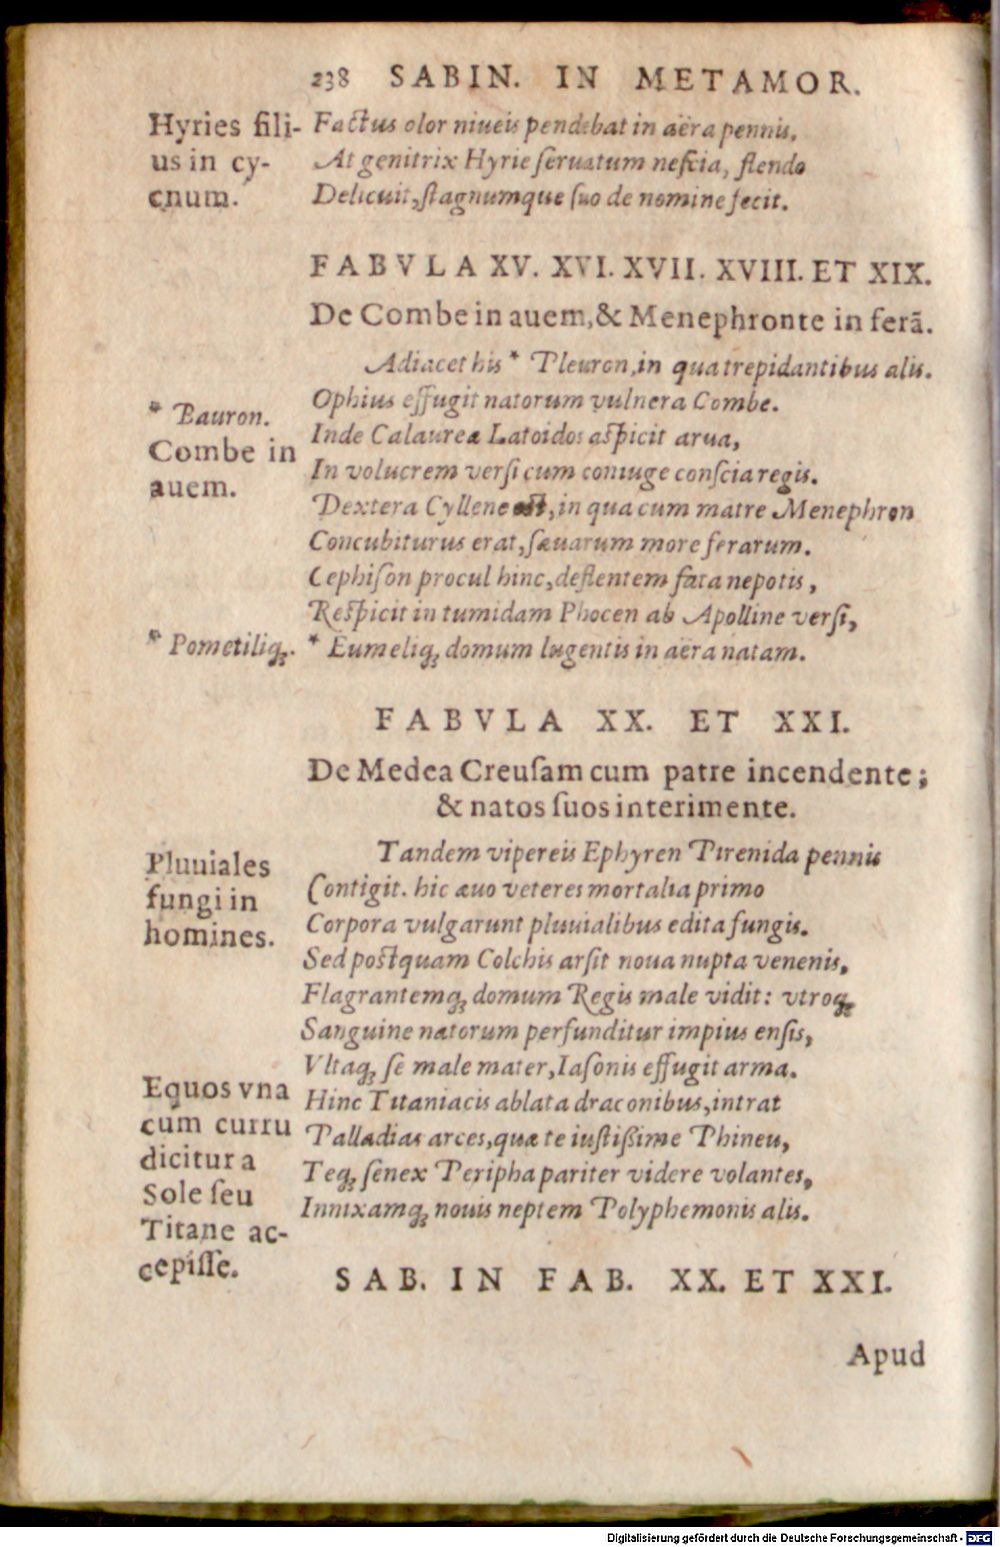 238 SABIN. IN METAMOR.
Hyries fili-
us in cy-
cnum.
Factus olor niueis pendebat in aëra pennis.
At genitrix Hyrie seruatum nescia, flendo
Delicuit, stagnumque suo de nomine fecit.
FABVLA XV. XVI. XVII. XVIII. ET XIX.
De Combe in auem, & Menephronte in ferā.
Adiacet his * Pleuron, in qua trepidantibus alis.
Ophius effugit natorum vulnera Combe.
* Bauron.
Combe in
auem.
Inde Calaureæ Latoidos aspicit arua,
In volucrem versi cum coniuge conscia regis.
Dextera Cyllene est, in qua cum matre Menephron
Concubiturus erat, sæuarum more ferarum.
Cephison procul hinc, deflentem fata nepotis,
Respicit in tumidam Phocen ab Apolline versi,
* Pometiliq;.
* Eumeliq; domum lugentis in aëra natam.
FABVLA XX. ET XXI.
De Medea Creusam cum patre incendente;
& natos suos interimente.
Tandem vipereis Ephyren Pirenida pennis
Pluuiales
fungi in
homines.
Contigit. hic æuo veteres mortalia primo
Corpora vulgarunt pluuialibus edita fungis.
Sed postquam Colchis arsit noua nupta venenis,
Flagrantemq; domum Regis male vidit: vtroq;
Sanguine natorum perfunditur impius ensis,
Vltaq; se male mater, Iasonis effugit arma.
Equos vna
cum curru
dicitur a
Sole seu
Titane ac-
cepisse.
Hinc Titaniacis ablata draconibus, intrat
Palladias arces, quæ te iustißime Phineu,
Teq; senex Peripha pariter videre volantes,
Innixamq; nouis neptem Polyphemonis alis.
SAB. IN FAB. XX. ET XXI.
Apud
Digitalisierung gefördert durch die Deutsche Forschungsgemeinschaft - DFG